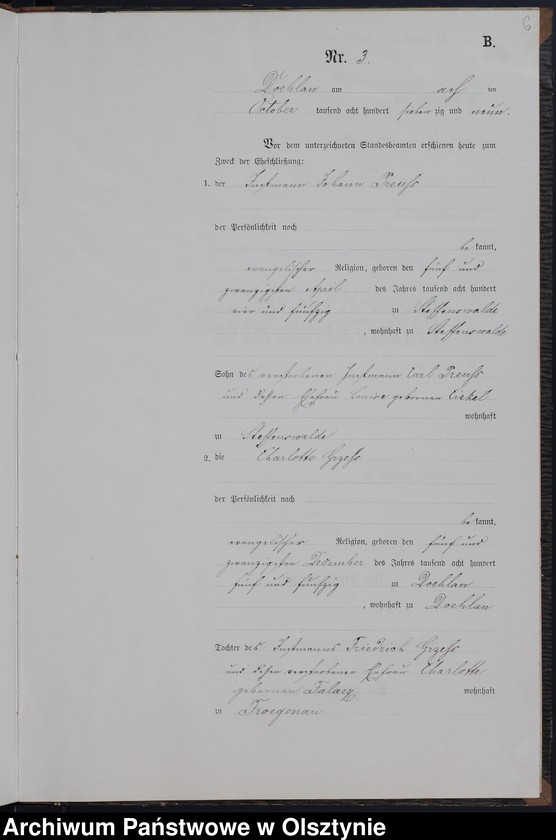 6
B.
Nr. 3.
Doehlau am acht ten
October tausend acht hundert sieben zig und neun.
Vor dem unterzeichneten Standesbeamten erschienen heute zum
Zweck der Eheschließung:
1. der Instmann Johann Preuss
der Persönlichkeit nach
be kannt,
evangelischer Religion, geboren den fünf und
zwanzigsten April des Jahres tausend acht hundert
vier und fünfzig zu Steffenswalde
, wohnhaft zu Steffenswalde
Sohn des verstorbenen Instmann Carl Preuss
und dessen Ehefrau Louise geborenen
wohnhaft
zu Steffenswalde
2. die Charlotte Grzess
der Persönlichkeit nach
be kannt,
evangelischer Religion, geboren den fünf und
zwanzigsten Dezember des Jahres tausend acht hundert
fünf und fünfzig zu Doehlau
, wohnhaft zu Doehlau
Tochter des Instmanns Friedrich Grzess
und dessen verstorbener Ehefrau Charlotte
geborenen
wohnhaft
zu Froegenau
Archiwum Państwowe w Olsztynie